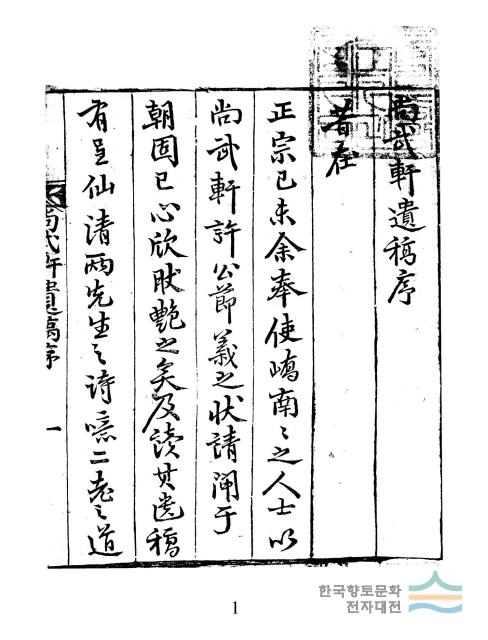 尚武軒遺稿序
昔在
正宗己未余奉使嶠南〻之人士以
尚武軒許公節義之狀請闻于
朝固已心欣耿艶之矣及读其遗稿
有呈仙清两先生〻诗噫二老〻道
尚武軒遺稿序 一
한국향토문화
전자대전
1